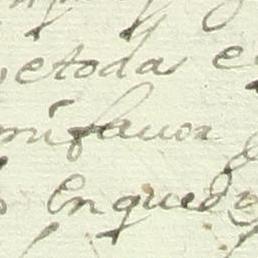 etoda e
mi favor
En qued